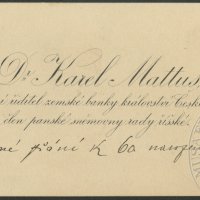 Dr Karel Mattuš,
ředitel zemské banky království Česk
člen panské sněmovny rady říšské
né přání k 60 narozen